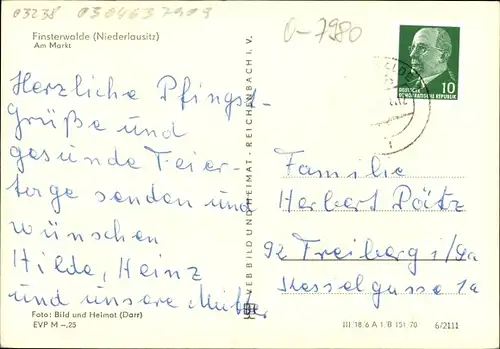 03238 0304637909
0-7980
Finsterwalde (Niederlausitz)
Am Markt
10
DEUTSCHE
DEMOKRATISCHE REPUBLIK
Herzliche Pfingst-
grüße und
gesunde Feier-
tage senden und
wünschen
Hilde, Heinz
und unsere Mutter
Foto: Bild und Heimat (Darr)
EVP M –.25
VEB BILD UND HEIMAT · REICHENBACH I. V.
Familie
Herbert Pötz
92 Freiberg i/Sa
Kesselgasse 1a
III 18 6 A 1/B 151 70 6/2111